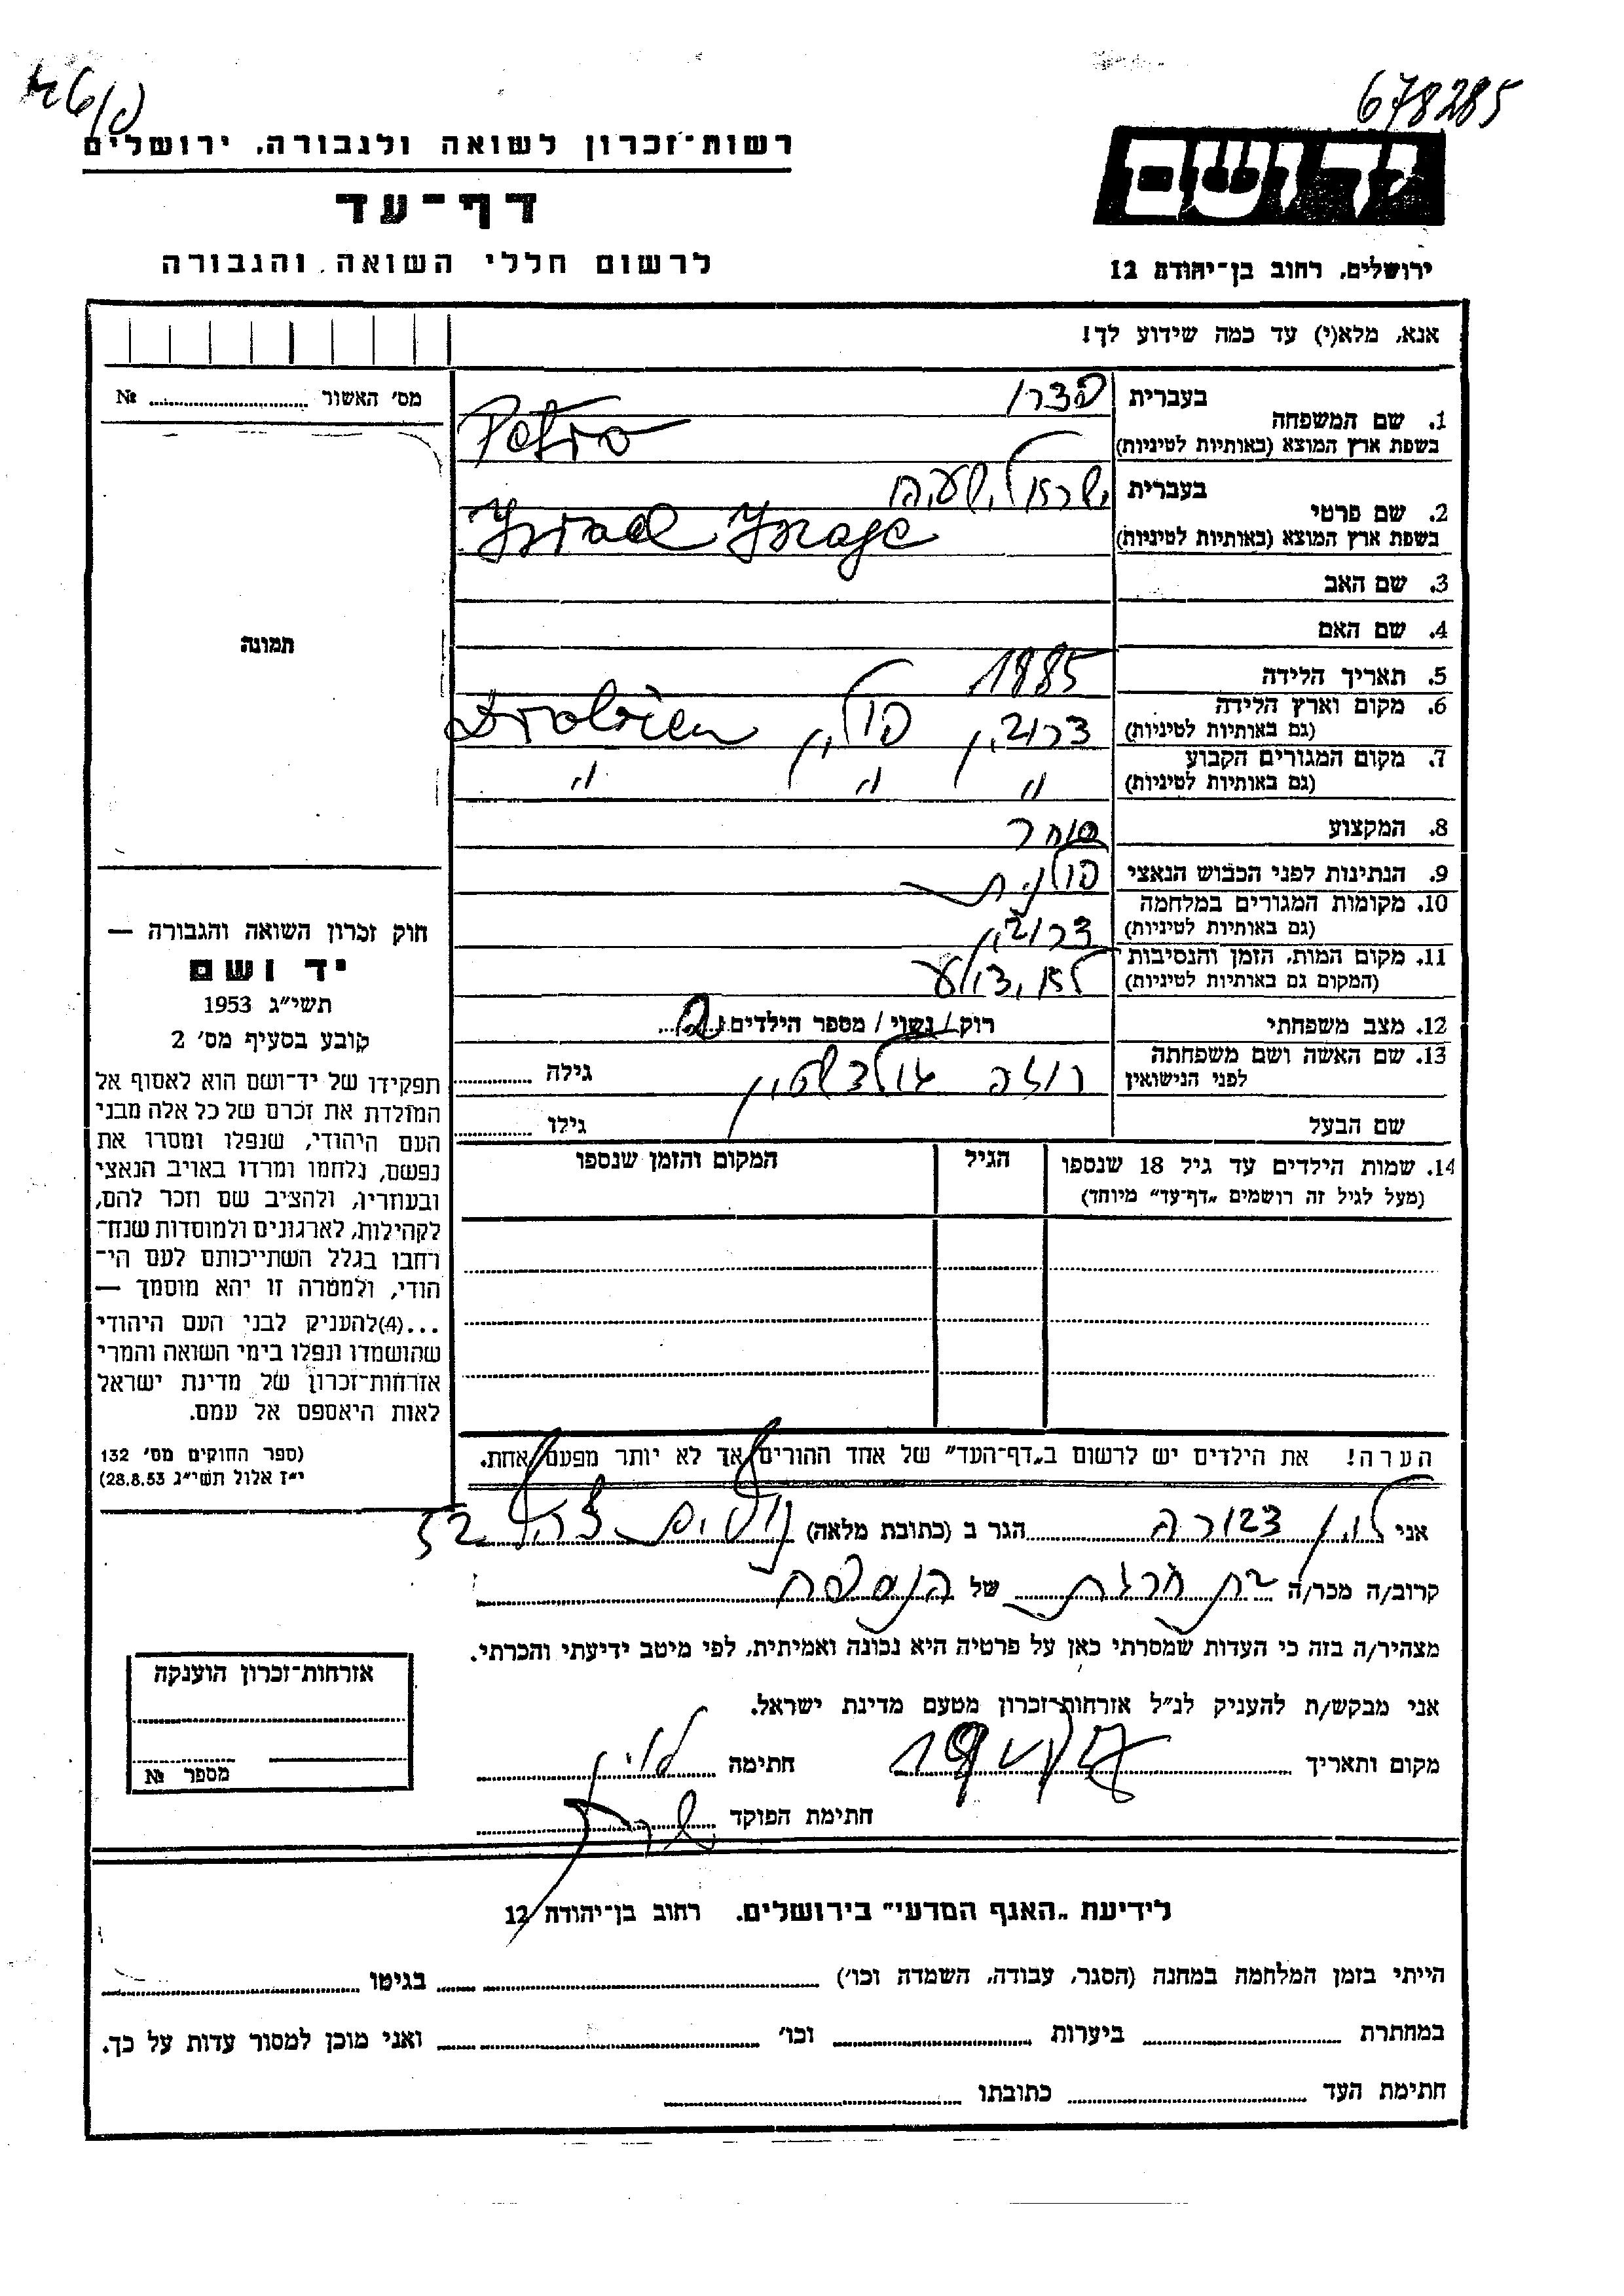 678285
רשות־זכרון לשואה ולגבורה, ירושלים
דף־עד
לרשום חללי השואה והגבורה
ידושם
ירושלים, רחוב בן־יהודה 12
אנא, מלא(י) עד כמה שידוע לך!
מס׳ האשור № 
תמונה
1. שם המשפחה בעברית פטרו
בשפת ארץ המוצא (באותיות לטיניות) Petro
2. שם פרטי בעברית ישראל, ישעיה
בשפת ארץ המוצא (באותיות לטיניות) Israel
3. שם האב
4. שם האם
5. תאריך הלידה 1885
6. מקום וארץ הלידה
(גם באותיות לטיניות) פולין
7. מקום המגורים הקבוע
(גם באותיות לטיניות) " " "
8. המקצוע סוחר
9. הנתינות לפני הכבוש הנאצי פולנית
10. מקומות המגורים במלחמה
(גם באותיות לטיניות)
11. מקום המות, הזמן והנסיבות
(המקום גם באותיות לטיניות) לא ידוע
12. מצב משפחתי רוק / נשוי / מספר הילדים 2
13. שם האשה ושם משפחתה
לפני הנישואין גולדשטיין גילה
שם הבעל גילו
14. שמות הילדים עד גיל 18 שנספו הגיל המקום והזמן שנספו
(מעל לגיל זה רושמים „דף־עד" מיוחד)
הערה! את הילדים יש לרשום ב„דף־העד" של אחד ההורים, אך לא יותר מפעם אחת.
חוק זכרון השואה והגבורה —
יד ושם
תשי״ג 1953
קובע בסעיף מס׳ 2
תפקידו של יד־ושם הוא לאסוף אל
המולדת את זכרם של כל אלה מבני
העם היהודי, שנפלו ומסרו את
נפשם, נלחמו ומרדו באויב הנאצי
ובעוזריו, ולהציב שם וזכר להם,
לקהילות, לארגונים ולמוסדות שנח־
רחבו בגלל השתייכותם לעם הי־
הודי, ולמטרה זו יהא מוסמך —
...(4)להעניק לבני העם היהודי
שהושמדו ונפלו בימי השואה והמרי
אזרחות־זכרון של מדינת ישראל
לאות היאספם אל עמם.
(ספר החוקים מס׳ 132
י״ז אלול תשי״ג 28.8.53)
אני הגר ב (כתובת מלאה)
קרוב/ה מכר/ה של
מצהיר/ה בזה כי העדות שמסרתי כאן על פרטיה היא נכונה ואמיתית, לפי מיטב ידיעתי והכרתי.
אני מבקש/ת להעניק לנ״ל אזרחות־זכרון מטעם מדינת ישראל.
מקום ותאריך חתימה
חתימת הפוקד
אזרחות־זכרון הוענקה
מספר №
לידיעת „האגף המדעי" בירושלים, רחוב בן־יהודה 12
הייתי בזמן המלחמה במחנה (הסגר, עבודה, השמדה וכו׳) בגיטו
במחתרת ביערות וכו׳ ואני מוכן למסור עדות על כך.
חתימת העד כתובתו